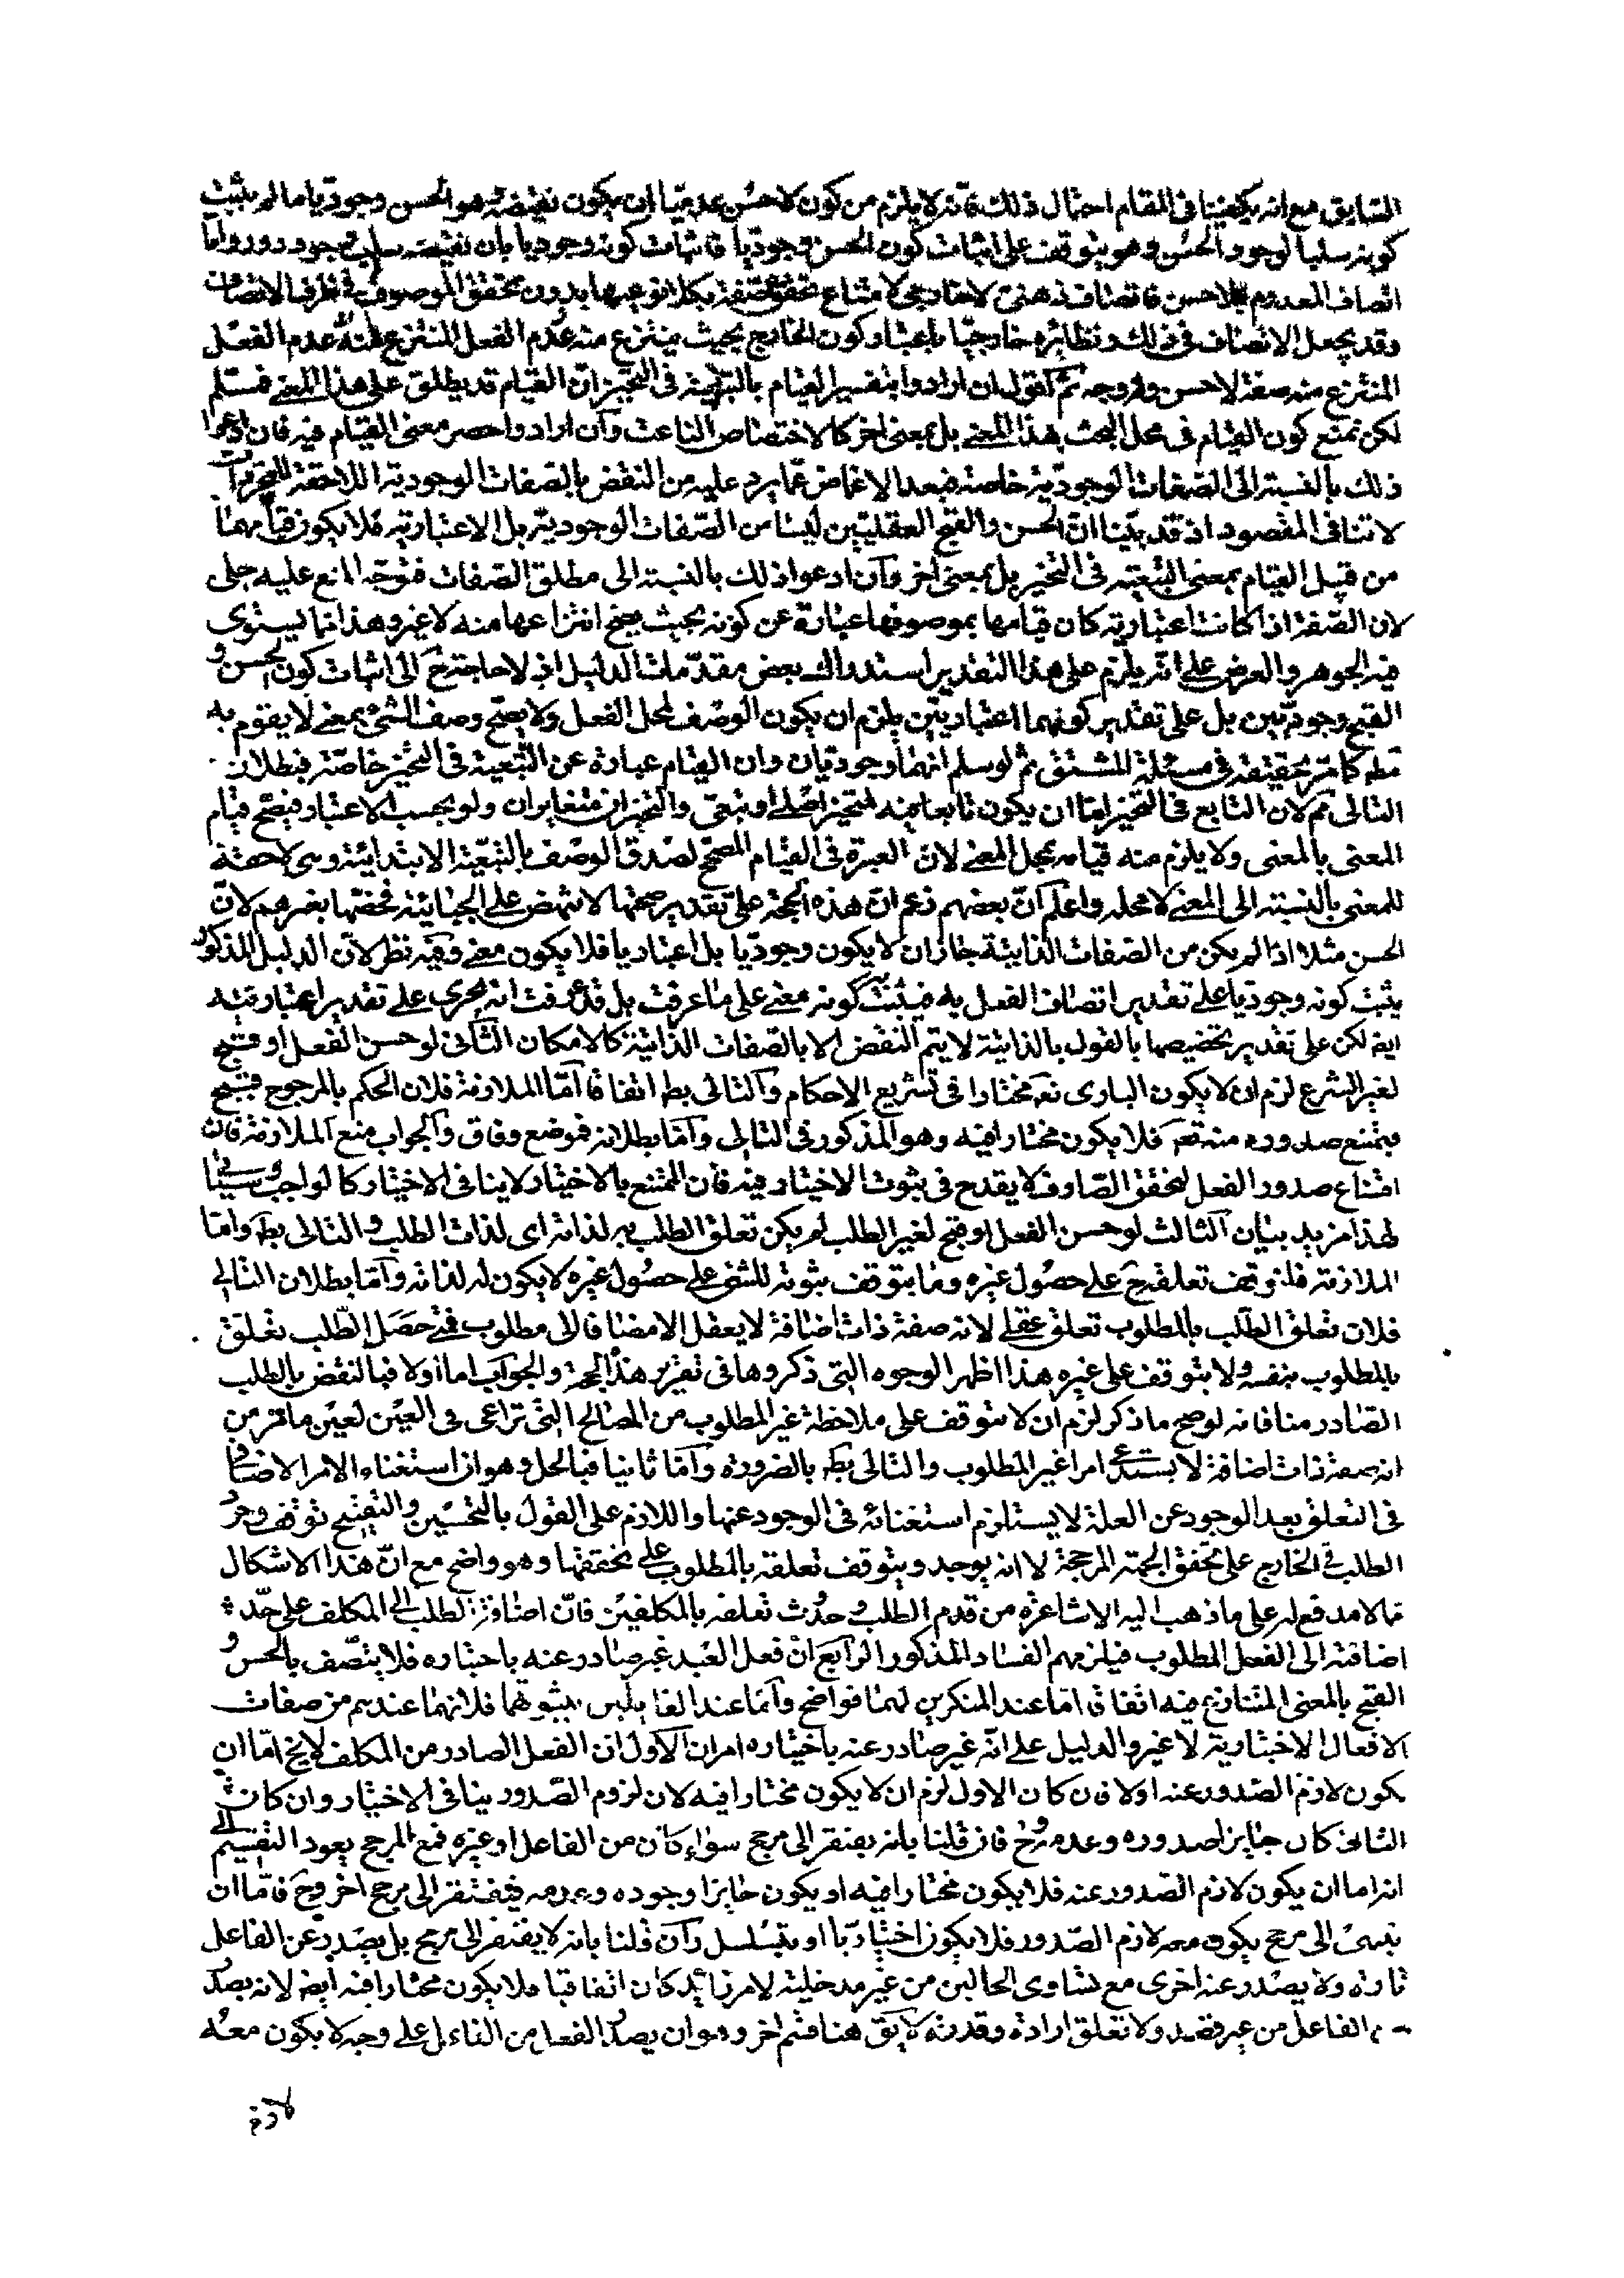 السابق مع انه يكفينا فى المقام احتمال ذلك فانه لا يلزم من كون لا حسن عدميّا ان يكون نقيضه و هو الحسن وجوديّا ما لم يثبت
كونه سلبا لوجود الحسن وهو يتوقف على اثبات كون الحسن وجوديّا فاثبات كونه وجوديا بان نقيضه سلب وجود دور وامّا
اتصاف المعدوم بلاحسن فاتصاف ذهنى لا خارجى لامتناع تحقق الصفة بكلا نوعيها بدون تحقق الموصوف فى ظرف الاتصاف
وقد يجعل الاتصاف فى ذلك ونظائره خارجيّا باعتبار كون الخارج بحيث ينتزع منه عدم الفعل المنتزع منه عدم الفعل
المنتزع منه صفة لاحسن وله وجه ثم نقول ان ارادوا بتفسير القيام بالتبعيّة فى التحيّز انّ القيام قد يطلق على هذا المعنى فمسلّم
لكن نمنع كون القيام فى محل البحث بهذا المعنى بل بمعنى اخر كالاختصاص الناعت وان ارادوا حصر معنى القيام فيه فان ادعوا
ذلك بالنسبة الى الصّفات الوجوديّة خاصّة فبعد الاغماض عمّا يرد عليه من النقض بالصّفات الوجودية اللاحقة للمجرّدات
لا تنافى المقصود اذ قد بيّنا انّ الحسن والقبح العقليّين ليسا من الصّفات الوجوديّة بل الاعتباريّة فلا يكون قيامهما
من قبيل القيام بمعنى التبعيّة فى التحيّز بل بمعنى اخر وان ادعوا ذلك بالنسبة الى مطلق الصّفات فتوجّه المنع عليه جلى
لان الصّفة اذا كانت اعتباريّة كان قيامها بموصوفها عبارة عن كونه بحيث يصحّ انتزاعها منه لا غير وهذا انما يستوى
فيه الجوهر والعرض على انّه يلزم على هذا التقدير استدراك بعض مقدّمات الدليل اذ لا حاجة ح الى اثبات كون الحسن و
القبح وجوديّين بل على تقدير كونهما اعتباريّين يلزم ان يكون الوصف لمحل الفعل ولا يصحّ وصف الشئ بمعنى لا يقوم به
كما مرّ تحقيقه فى مسئلة المشتق ثم لو سلم انهما وجوديّان وان القيام عبارة عن التبعية فى التحيّز خاصّة فبطلان
التالى مم لان التابع فى التحيّز امّا ان يكون تابعا فيه لمتحيّز اصلى او تبعىّ والتحيّزان متغايران ولو بحسب الاعتبار فيصحّ قيام
المعنى بالمعنى ولا يلزم منه قيامه بمحل المعنى لان العبرة فى القيام المصحّح لصدق الوصف بالتبعيّة الابتدائيّة وهى لاحقة
للمعنى بالنسبة الى المعنى لا محله واعلم انّ بعضهم زعم انّ هذه الحجّة على تقدير صحّتها لا تنهض على الجبائية فخصّها بغيرهم لانّ
الحسن مثلا اذا لم يكن من الصّفات الذاتيّة جاز ان لا يكون وجوديّا بل اعتباريا فلا يكون معنى وفيه نظر لانّ الدليل المذكور
يثبت كونه وجوديا على تقدير اتصاف الفعل به فيثبت كونه معنى على ما عرفت بل قد عرفت انه يجرى على تقدير اعتباريته
ايضا لكن على تقدير تخصيصها بالقول بالذاتيّة لا يتم النقض الا بالصّفات الذاتيّة كالامكان الثانى لو حسن الفعل او قبح
لغير الشرع لزم ان لا يكون البارى تعه مختارا فى تشريع الاحكام والتالى بط اتفاقا امّا الملازمة فلان الحكم بالمرجوح قبيح
فيمتنع صدوره منه تعم فلا يكون مختارا فيه وهو المذكور فى التالى وامّا بطلانه فموضع وفاق والجواب منع الملازمة فان
امتناع صدور الفعل لتحقق الصّارف لا يقدح فى ثبوت الاختيار فيه فان الممتنع بالاختيار لا ينافى الاختيار كالواجب وسيأتى
لهذا مزيد بيان الثالث لو حسن الفعل او قبح لغير الطلب لم يكن تعلق الطلب به لذاته اى لذات الطلب والتالى بط وامّا
الملازمة فلتوقف تعلقه ح على حصول غيره وما يتوقف ثبوته للشئ على حصول غيره لا يكون له لذاته وامّا بطلان التالى
فلان تعلق الطّلب بالمطلوب تعلق عقلى لانه صفة ذات اضافة لا يعقل الا مضافا الى مطلوب فمتى حصل الطّلب تعلق
بالمطلوب بنفسه ولا يتوقف على غيره هذا اظهر الوجوه التى ذكروها فى تقرير هذه الحجة والجواب اما اولا فبالنقض بالطلب
الصّادر منا فانه لو صح ما ذكر لزم ان لا يتوقف على ملاحظة غير المطلوب من المصالح التى تراعى فى العين لعين ما مرّ من
انه صفة ذات اضافة لا يستدعى امرا غير المطلوب والتالى بط بالضرورة وامّا ثانيا فبالحل وهو ان استغناء الامر الاضافى
فى التعلق بعد الوجود عن العلة لا يستلزم استغنائه فى الوجود عنها واللازم على القول بالتحسين والتقبيح توقف وجود
الطلب فى الخارج على تحقق الجهة المرجحة لا انه يوجد ويتوقف تعلقه بالمطلوب على تحققها وهو واضح مع انّ هذا الاشكال
مما لا مدفع له على ما ذهب اليه الاشاعرة من قدم الطلب و حدوث تعلقه بالمكلفين فانّ اضافة الطلب الى المكلف على حدّ
اضافته الى الفعل المطلوب فيلزمهم الفساد المذكور الرابع انّ فعل العبد غير صادر عنه باختياره فلا يتّصف بالحسن و
القبح بالمعنى المتنازع فيه اتفاقا امّا عند المنكرين لهما فواضح وامّا عند القايلين بثبوتهما فلانهما عندهم من صفات
الافعال الاختيارية لا غير والدليل على انّه غير صادر عنه باختياره امران الاول ان الفعل الصادر من المكلف لا يخ امّا ان
يكون لازم الصّدور عنه اولا فان كان الاول لزم ان لا يكون مختارا فيه لان لزوم الصّدور ينافى الاختيار وان كان
الثانى كان جايزا صدوره وعدمه وح فان قلنا بانه يفتقر الى مرجح سواء كان من الفاعل او غيره فمع المرجح يعود التقسيم الى
انه اما ان يكون لازم الصّدور عنه فلا يكون مختارا فيه او يكون جايزا وجوده وعدمه فيفتقر الى مرجح اخر وح فامّا ان
ينتهى الى مرجح يكون معه لازم الصّدور فلا يكون اختياريّا او يتسلسل وان قلنا بانه لا يفتقر الى مرجح بل يصدر عن الفاعل
تارة ولا يصدر عنه اخرى مع تساوى الحالين من غير مدخلية لامر زايد كان اتفاقيا فلا يكون مختارا فيه ايضا لانه يصدر
الفاعل من غير قصد ولا تعلق ارادة وقدرة لا يق هنا قسم اخر وهو ان يصدر الفعل من الفاعل على وجه لا يكون معه
لازم